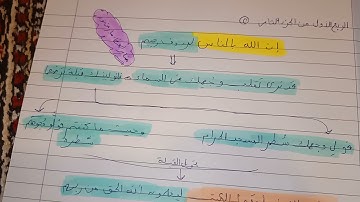 الربع الاول من الجزء الثاني
إن الله بالناس لرءوف رحيم
قد نرى تقلب وجهك في السماء فلنولينك قبلة ترضها
فول وجهك شطر المسجد الحرام
وحيث ما كنتم فولوا وجوهكم
شطره
ليعلمون انه الحق من ربهم